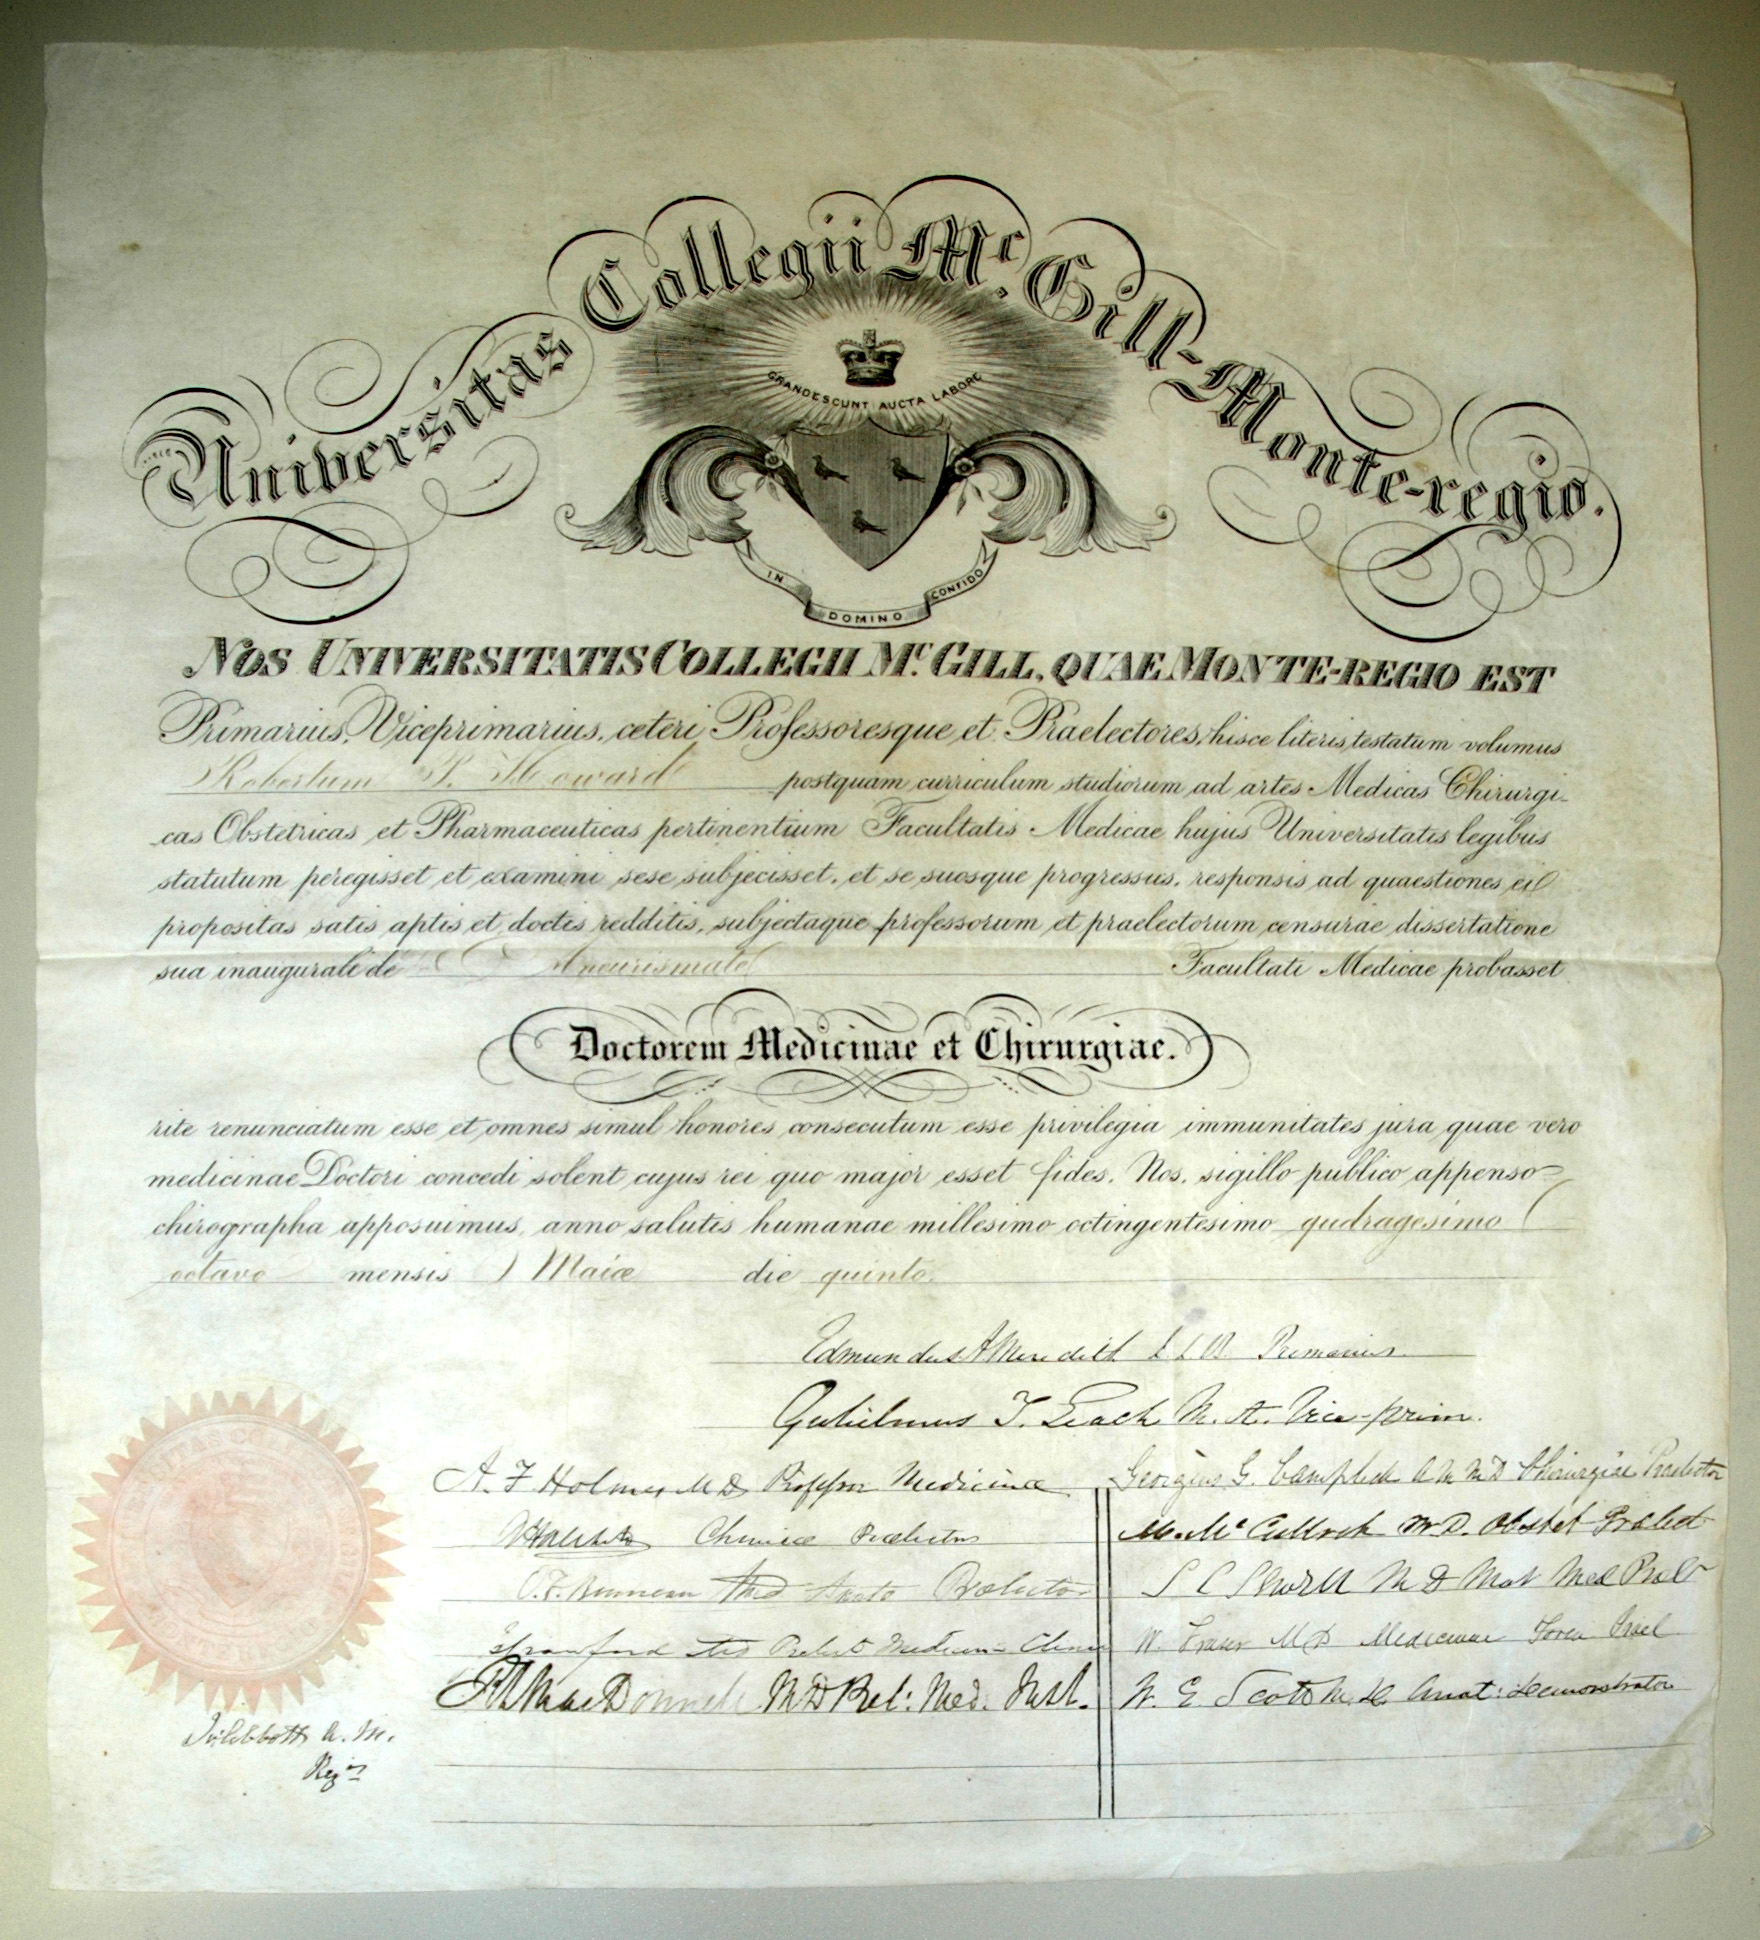 Universitas Collegii Mc. Gill-Monte-regio.
GRANDESCUNT AUCTA LABORE
IN DOMINO CONFIDO
NOS UNIVERSITATIS COLLEGII Mc. GILL, QUAE MONTE-REGIO EST
Primarius, Viceprimarius, ceteri Professoresque et Praelectores, hisce literis testatum volumus
Robertum P. Howard postquam curriculum studiorum ad artes Medicas Chirurgi-
cas Obstetricas et Pharmaceuticas pertinentium Facultatis Medicae hujus Universitatis legibus
statutum peregisset et examini sese subjecisset, et se suosque progressus, responsis ad quaestiones ei
propositas satis aptis et doctis redditis, subjectaque professorum et praelectorum censurae dissertatione
sua inaugurali de Aneurismate Facultati Medicae probasset
Doctorem Medicinae et Chirurgiae.
rite renunciatum esse et omnes simul honores consecutum esse privilegia immunitates jura quae vero
medicinae Doctori concedi solent cujus rei quo major esset fides, Nos, sigillo publico appenso
chirographa apposuimus, anno salutis humanae millesimo octingentesimo qudragesimo
octavo mensis Maiæ die quinto.
Edmundus A Meredith L L B Primarius
Gulielmus T. Leach M. A. Vice-prim.
A. F. Holmes M D Professor Medicinæ
Georgius G. Campbell A M M D Chirurgiæ Prælector
Chemiæ Prælector
M. Mc Culloch M D. Obstet Prælect
Prælector
S C Sewell M D Mat Med Præl
Crawford
W. Fraser M D Medicinae Foren Præl
R L MacDonnell M D Præl: Med. Inst.
W. E. Scott M. D. Anat: Demonstrator
A. M.
Regr